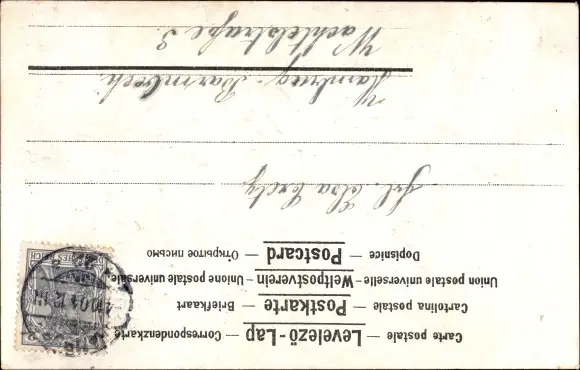 Carte postale — Levelező-Lap — Correspondenzkarte
Cartolina postale — Postkarte — Briefkaart
Union postale universelle — Weltpostverein — Unione postale universale
Dopisnice — Postcard — Открытое письмо
Frl. Elsa
Hamburg-Barmbeck
Wachtelstraße 3.